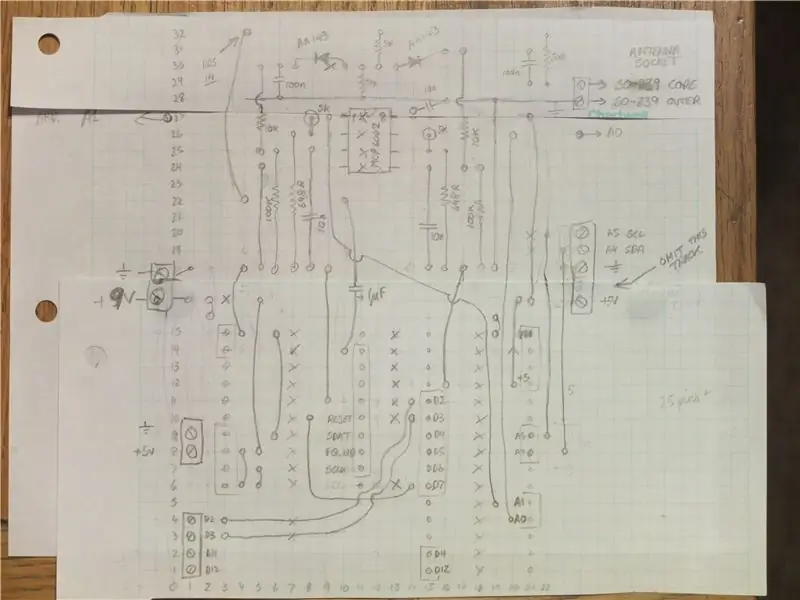 32
31
30
29
28
27
26
25
24
23
22
21
20
19
AA143
5k
100n
100n
ANTENNA
SOCKET
SO-239 CORE
SO-239 OUTER
A1
5k
MCP6002
10K
10K
A0
100K
698R
10n
698R
100K
A5 SCL
A4 SDA
+5V
OMIT THIS
TRACK
+9V
1µF
15
14
13
12
11
10
9
8
7
6
5
4
3
2
1
0
+5
D2
D3
D4
D5
D6
D7
RESET
SDAT
FQ.UD
SCLK
A5
A4
5
25 pins
+5V
A1
A0
D2
D3
D11
D12
D11
D12
0 1 2 3 4 5 6 7 8 9 10 11 12 13 14 15 16 17 18 19 20 21 22